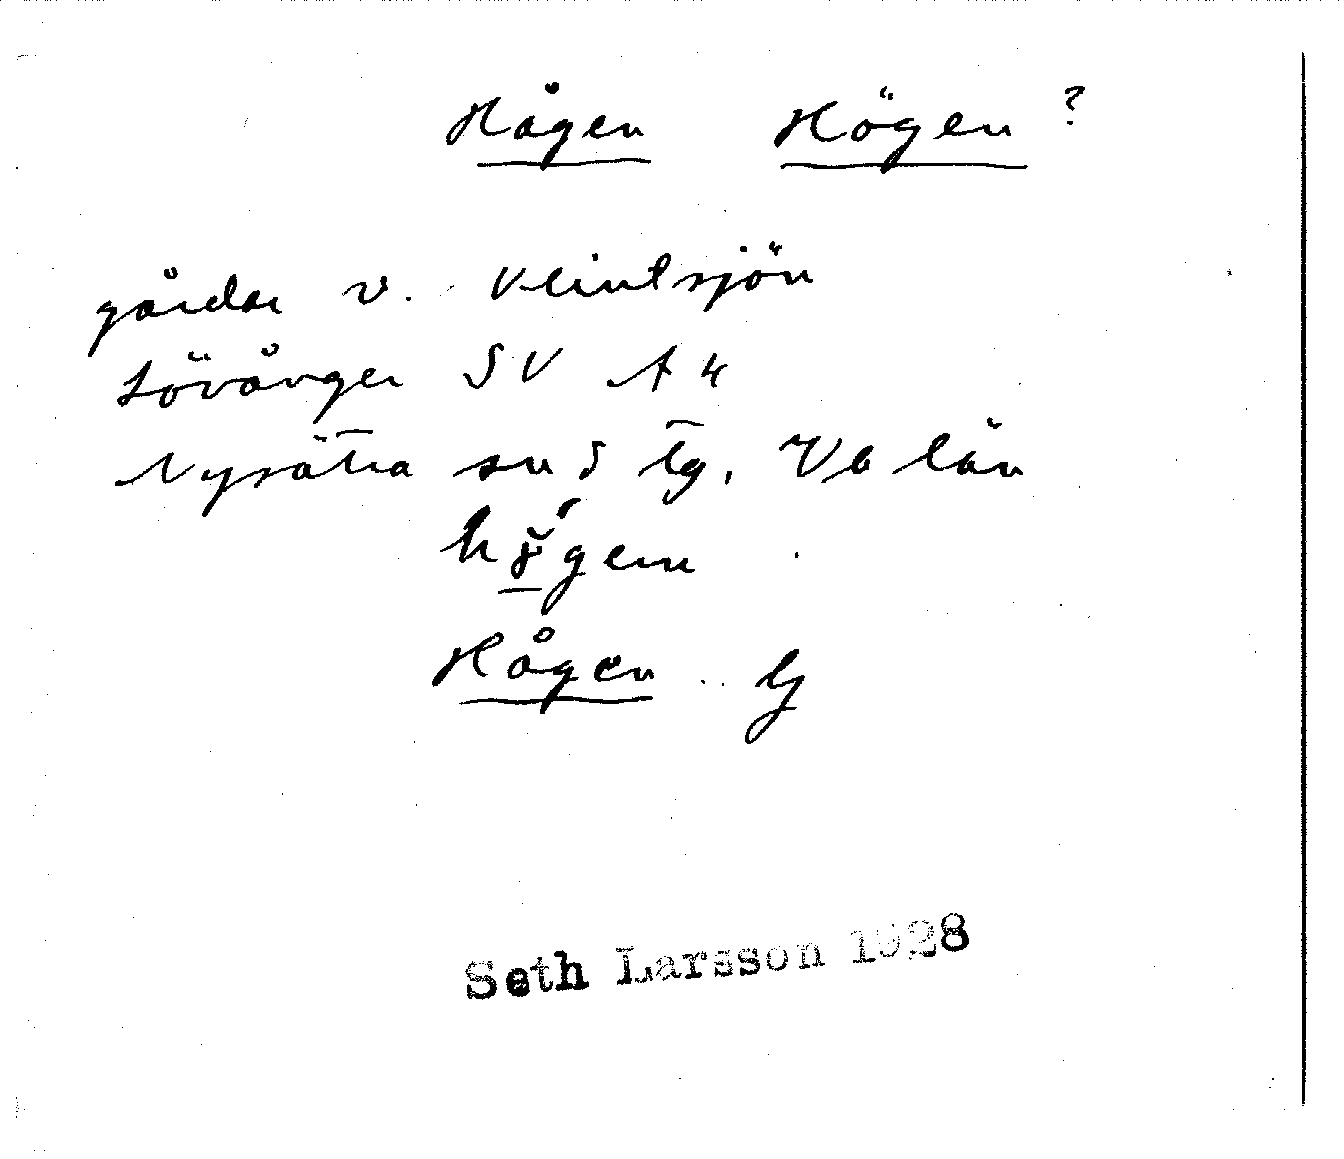 Hågen Högen ?
gårdar v. Klintsjön
Lövånger SV A 4
Nysätra sn S tg. Vb län
Hågen G
Seth Larsson 1928